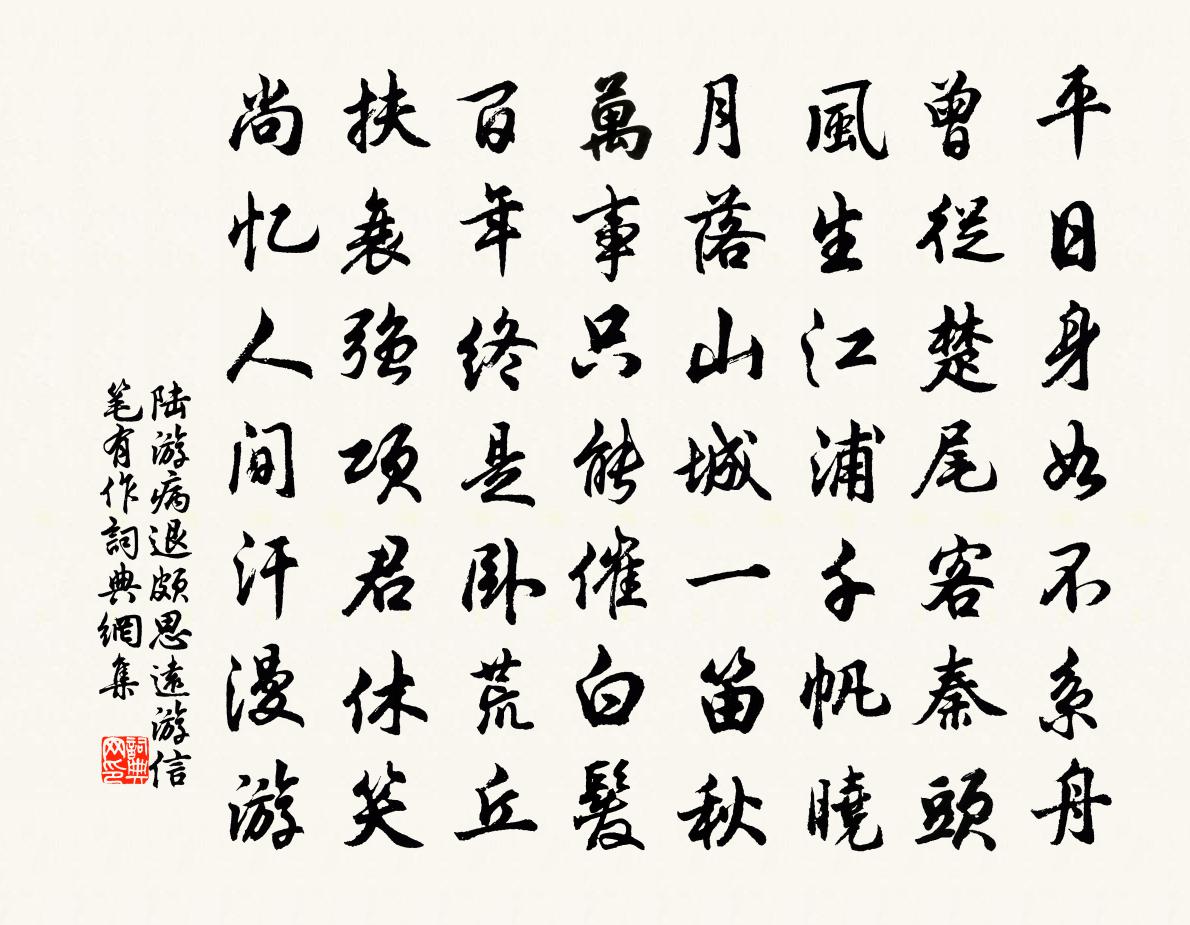 平日身如不系舟
曾從楚尾客秦頭
風生江浦千帆曉
月落山城一笛秋
萬事只能催白髮
百年終是卧荒丘
扶衰強項君休笑
尚忆人间汗漫游
陆游病退頗思遠游信
笔有作詞典網集
詞典
网印